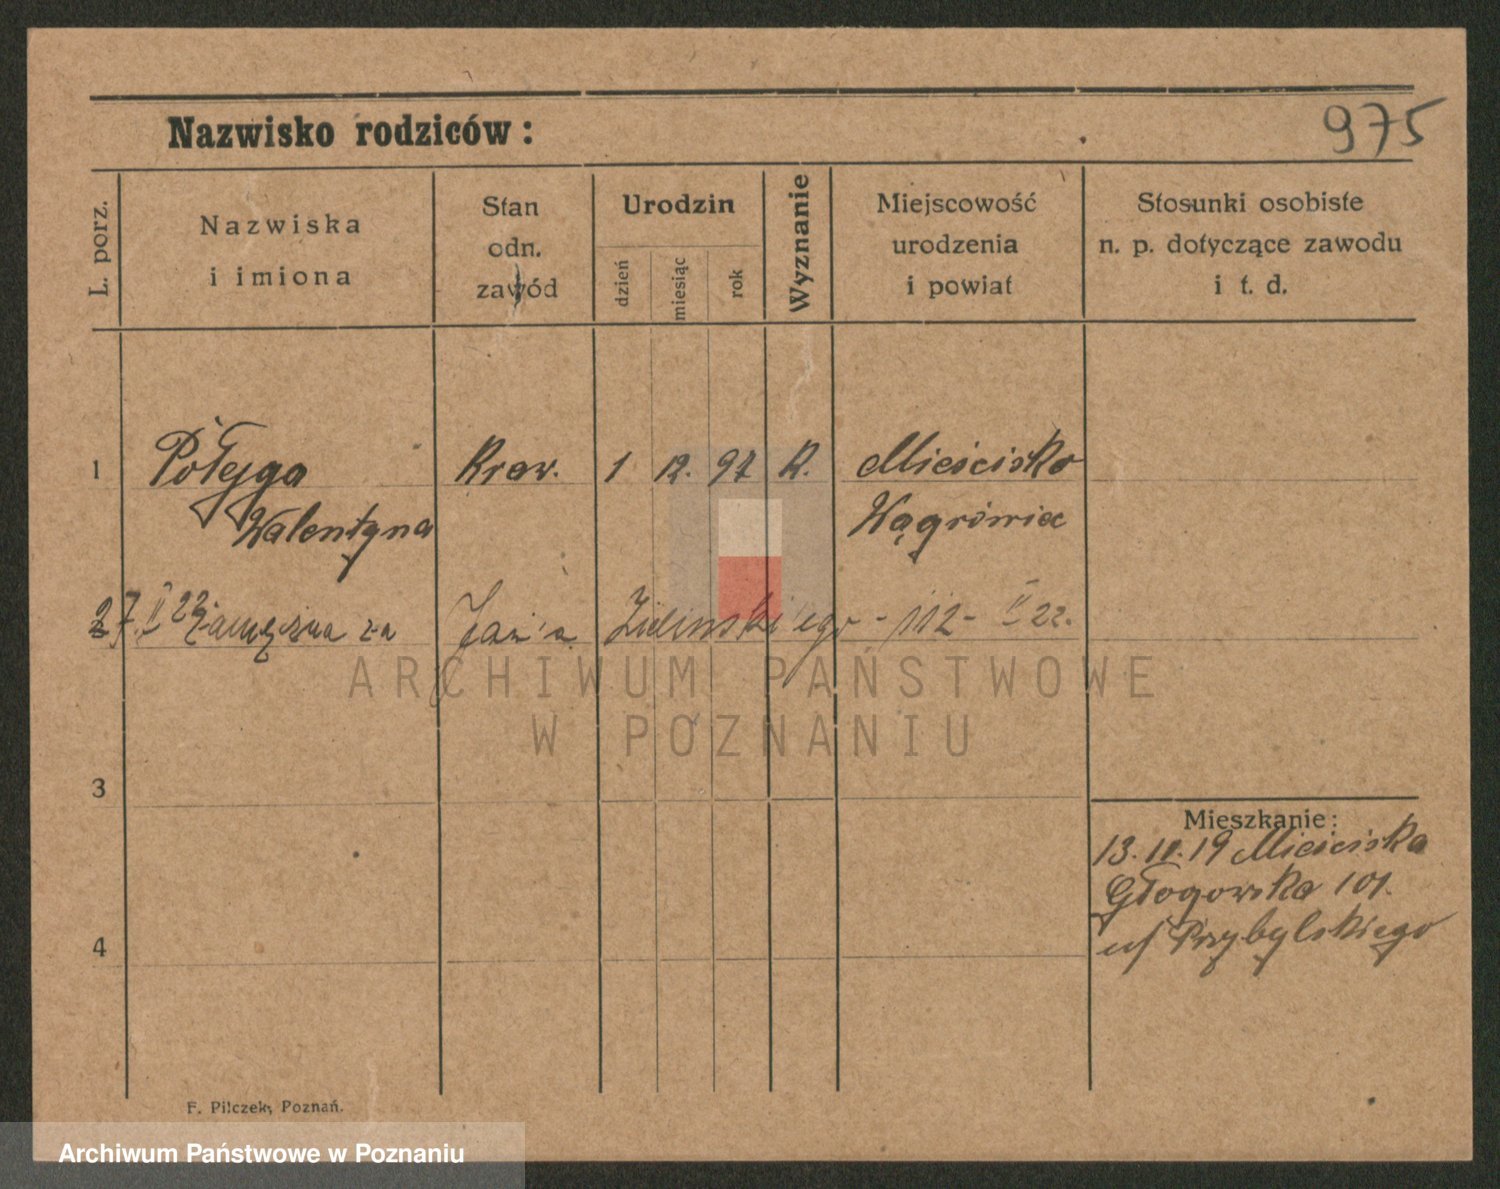 975
Nazwisko rodziców:
L. porz.
Nazwiska
i imiona
Stan
odn.
zawód
Urodzin
dzień
miesiąc
rok
Wyznanie
Miejscowość
urodzenia
i powiat
Stosunki osobiste
n. p. dotyczące zawodu
i t. d.
1 Połejga Kraw. 1 12. 97 K. Mieścisko
Walentyna Wągrówiec
27. II 22 Zamężna za Jan'a Zielinski'ego - 112 - II 22.
3
Mieszkanie:
13. 11. 19 Mieściska
Głogowska 101.
u/ Przybylskiego
4
F. Pilczek, Poznań.
ARCHIWUM PAŃSTWOWE
W POZNANIU
Archiwum Państwowe w Poznaniu